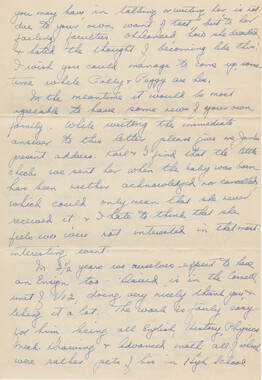 you may have in talking or writing her is not
due to your own want of tact but to her
failing faculties. Oh Leonard how she dreaded
& hated the thought of becoming like this!
I wish you could manage to come up some
time while Polly & Peggy are here.
In the meantime it would be most
agreeable to have some news of your own
family. While writing the immediate
answer to this letter please give us
present address. & I find that the little
check we sent her when the baby was born
has been neither acknowledged nor cancelled
which could only mean that she never
received it & I hate to think that she
feels we were not interested in that most
interesting event.
In 2½ years we ourselves expect to have
an Ensign too - is in the Cornell
unit of V12, doing very nicely thank you &
liking it a lot. The work is fairly easy
for him being all English History Physics
Mech. Drawing & Advanced math all of which
were rather pets of his in High School